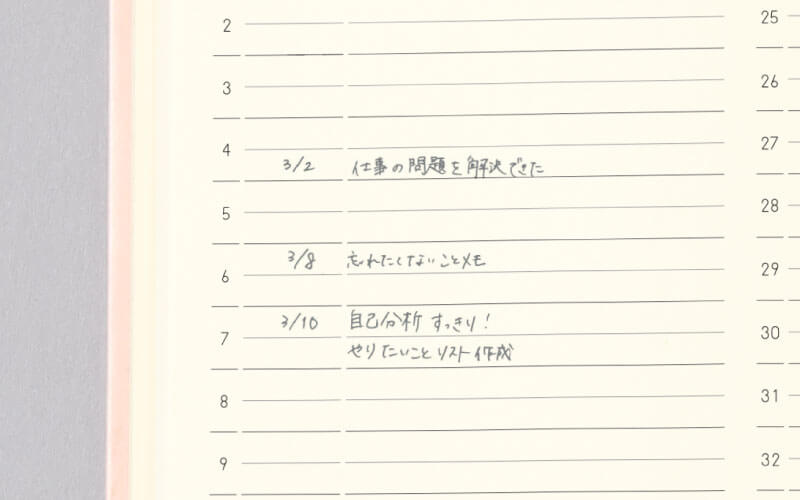 2
3
4
3/2 仕事の問題を解決できた
5
6
3/8 忘れたくないことメモ
7
3/10 自己分析 すっきり!
やりたいことリスト作成
8
9
25
26
27
28
29
30
31
32